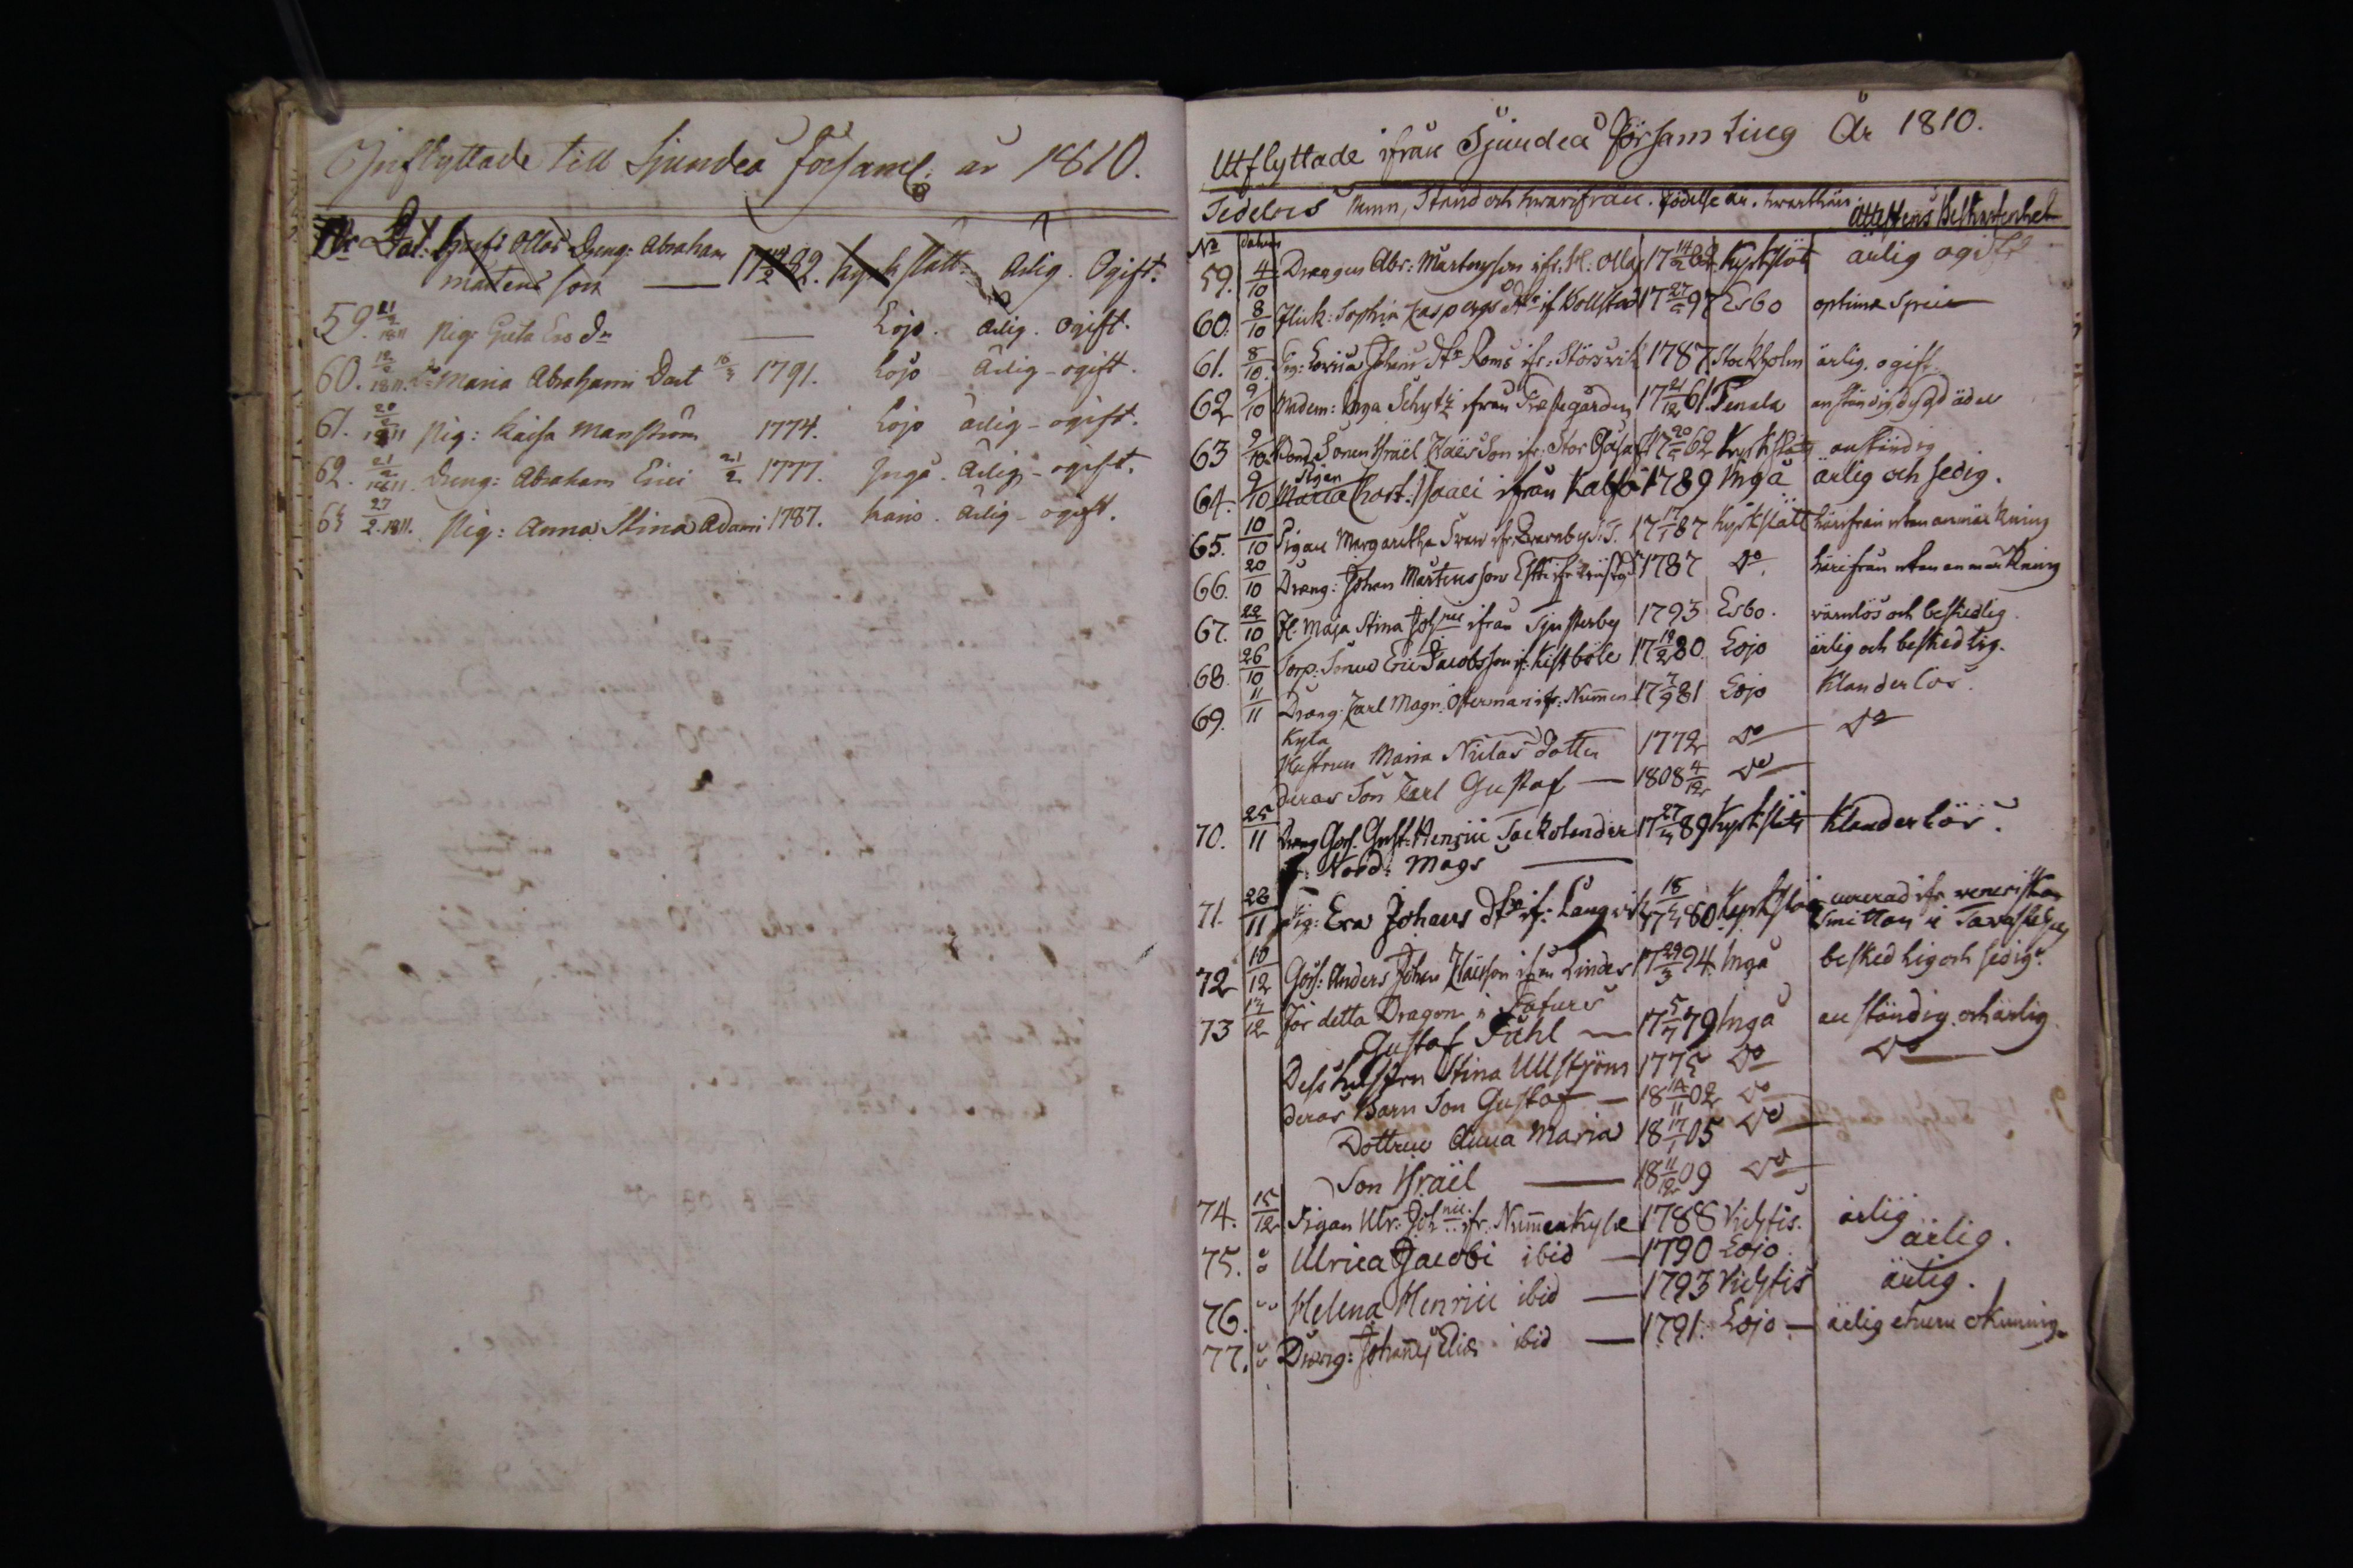 Inflyttade till Sjundeå församl: år 1810.
Dräng: Abraham
Mårtens son — 17 14/2 82. Kyrkslätt ärlig. Ogift.
59. 21/2 1811 Pig: Greta Ers dr — Lojo. ärlig. ogift.
60. 1811. Maria Abrahami Dott 1791. Lojo ärlig - ogift.
61. 20/2 1811 Pig: Kaisa Manström 1774. Lojo ärlig - ogift.
62. 21/2 1811. Dreng: Abraham Erici 21/2 1777. Ingå. ärlig - ogift.
63 27/2. 1811. Pig: Anna Stina Adami 1787. ärlig - ogift.
Utflyttade ifrån Sjundeå församling År 1810.
Sedelens Namn, Stånd och hwarifrån. födelse år. hwarthän. Attestens Beskaffenhet
No datum
59. 4/10 Drängen Abr: Mårtensson 17 14/2 82 Kyrkslät ärlig ogift
60. 8/10 Flick: Sophia if Kollstad 17 97 Esbo optime
61. 8/10. Pig: Lovisa Johans dtr Roms ifr: Störsvik 1787 Stockholm ärlig. ogift.
62 9/10 Madem: Inga ifrån Prestegården 17 21/12 61. Tenala anständig
63 9/10 Bond Sonen Israël Claësson ifr: Stor 17 62 Kyrkslätt anständig
64. 9/10 Pigan Maria Isaaci ifrån 1789 Ingå ärlig och sedig.
65. 10/10 Pigan Margaretha 17 17/1 87 Kyrkslätt härifrån utan anmärkning
66. 20/10 Dräng: Johan Mårtensson 1787 Do. härifrån utan anmärkning
67. 22/10 Fl. Maja Stina ifrån Sjusterby 1793 Esbo. och beskedlig.
68. 26/10 Torp: Sonen Eric Jacobsson if: Kistböle 17 19/2 80. Lojo ärlig och beskedlig.
69. 11/11 Dräng: Carl Magn: Österman ifr: Nummen 17 7/9 81 Lojo Klanderlös.
Kyla
Hustrun Maria Niclas Dotter 1772 Do Do
deras Son Carl Gustaf — 1808 4/12 Do
70. 25/11 Dräng Gust: Henric Sackolander 17 27/4 89 Kyrkslätt Klanderlös.
Nord: Mags —
71. 28/11 Pig: Eva Johans dtr if: Langvik 17 80 Kyrkslä curerad ifr veneriska
Smittan i Tavastehus
72 10/12 Anders Johan Claësson ifrån Lindes 17 29/3 94 Ingå beskedlig och sedig.
73 12/12 För detta Dragon i
Gustaf Fåhl — 17 5/7 79 Ingå anständig. och ärlig
Dess hustru Stina Ullström 1775 Do Do
deras Barn Son Gustaf — 18 14/11 02 Do
Dottren Anna Maria 18 17/1 05 Do
Son Israël — 18 11/12 09 Do
74. 15/12 Pigan Ulr: ifr: Nummenkyla 1788 Vichtis. ärlig
75. Ulrica Jacobi ibid — 1790 Lojo. ärlig.
76. Helena Henrici ibid — 1793 Vichtis ärlig.
77. Dräng: Johan Elias ibid — 1791. Lojo — ärlig ehuru okunnig.